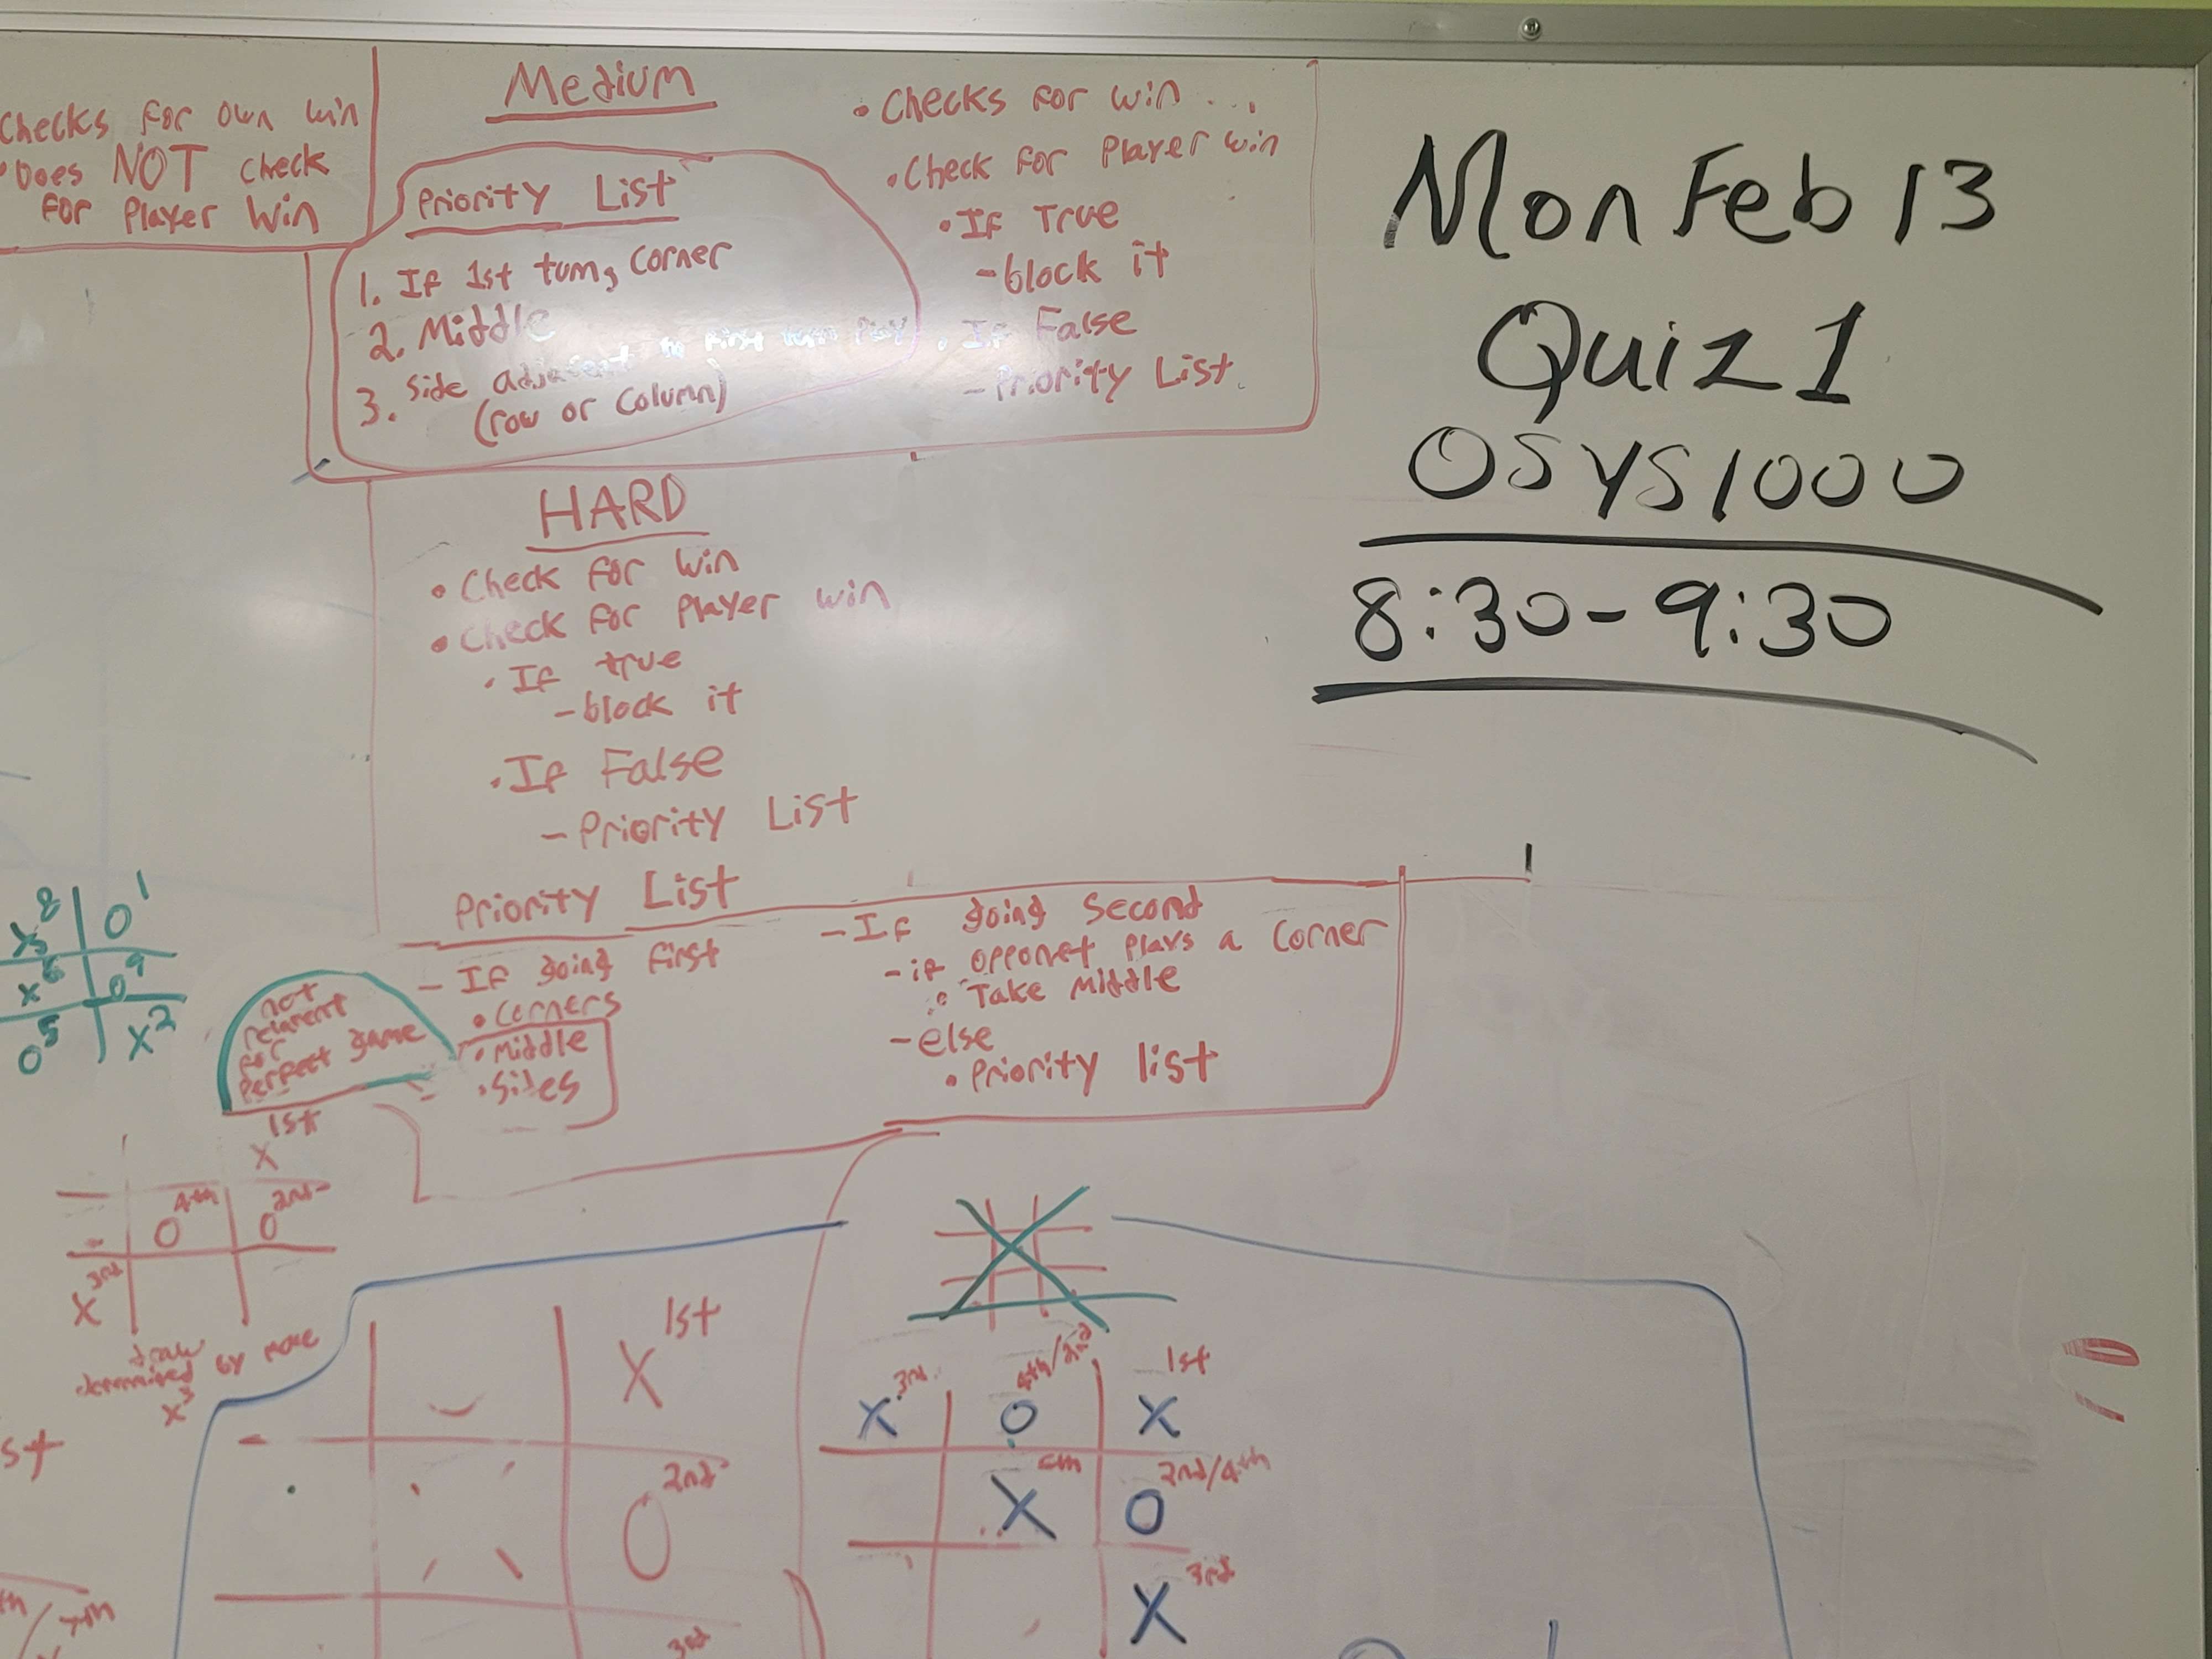 Checks for own win
•Does NOT check
for Player Win
Medium
Priority List
1. If 1st turn, Corner
2. Middle
3. Side adjacent to first turn Play
(row or Column)
• Checks for win ...
• Check for Player win
• If True
- block it
• If False
- Priority List
Mon Feb 13
Quiz 1
OSYS1000
8:30-9:30
HARD
• Check for win
• Check for Player win
• If true
- block it
• If False
- Priority List
Priority List
- If going first
• Corners
• Middle
• Sides
- If going Second
- if opponet plays a Corner
• Take Middle
- else
• Priority list
X 8 O 1
X 6 O 9
O 5 X 2
not
for
Perfect game
1st
X
O 4th O 2nd
X 3rd
draw
determined by move
X 3
st
X 1st
O 2nd
3rd
X 3rd O 4th/2nd X 1st
X O 2nd/4th
X 3rd